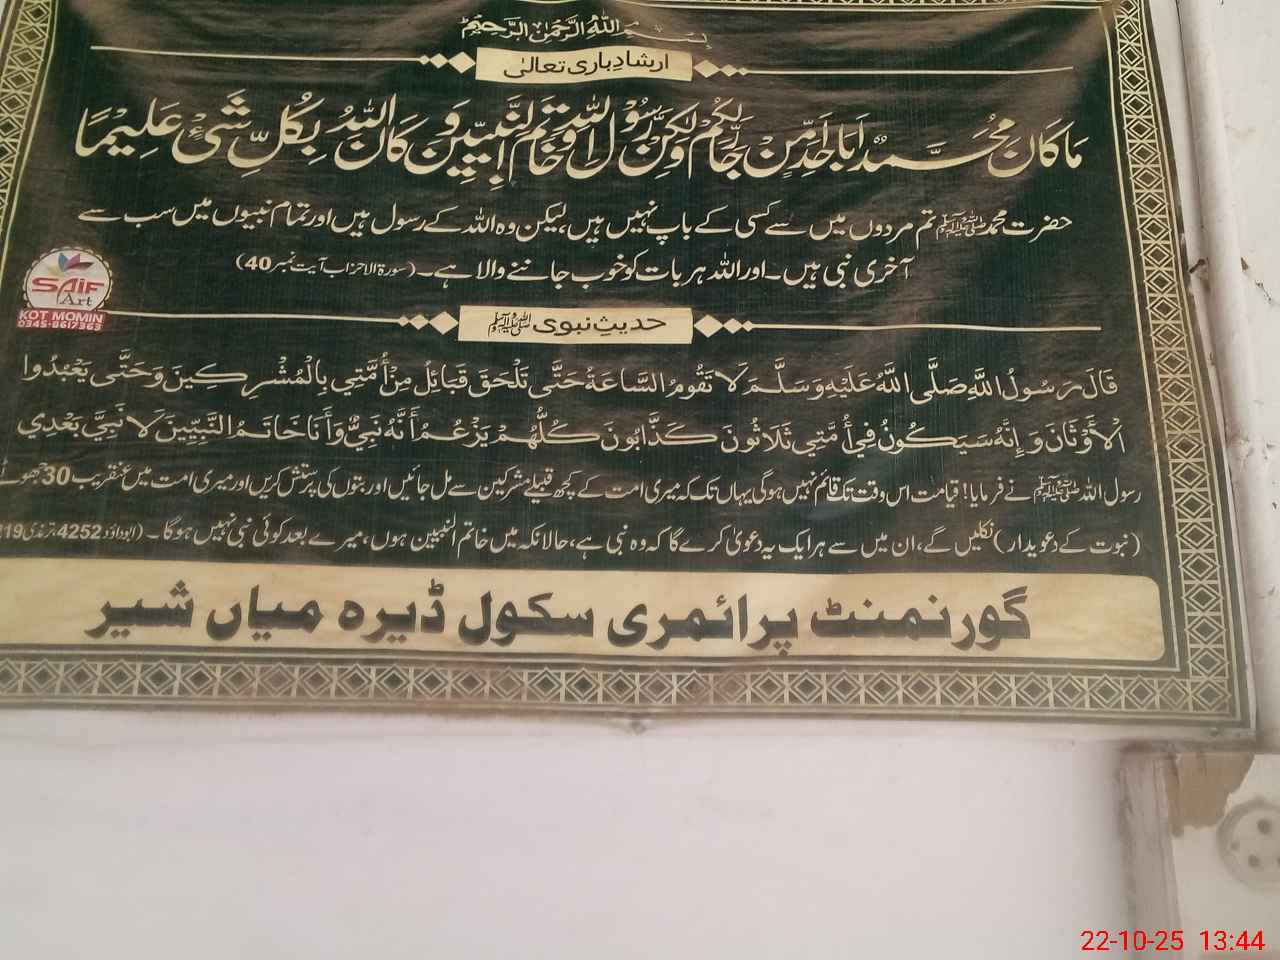 بِسْمِ اللّٰهِ الرَّحْمٰنِ الرَّحِيْمِ
ارشادِ باری تعالیٰ
مَا كَانَ مُحَمَّدٌ اَبَآ اَحَدٍ مِّنْ رِّجَالِكُمْ وَلٰكِنْ رَّسُوْلَ اللّٰهِ وَخَاتَمَ النَّبِيّٖنَ وَكَانَ اللّٰهُ بِكُلِّ شَیْءٍ عَلِيْمًا
حضرت محمد ﷺ تم مردوں میں سے کسی کے باپ نہیں ہیں، لیکن وہ اللہ کے رسول ہیں اور تمام نبیوں میں سب سے
آخری نبی ہیں۔ اور اللہ ہر بات کو خوب جاننے والا ہے۔ (سورۃ الاحزاب آیت نمبر 40)
SAIF
Art
KOT MOMIN
0345-8617363
حدیثِ نبوی ﷺ
قَالَ رَسُولُ اللَّهِ صَلَّى اللَّهُ عَلَيْهِ وَسَلَّمَ لَا تَقُومُ السَّاعَةُ حَتَّى تَلْحَقَ قَبَائِلُ مِنْ أُمَّتِي بِالْمُشْرِكِينَ وَحَتَّى يَعْبُدُوا
الْأَوْثَانَ وَإِنَّهُ سَيَكُونُ فِي أُمَّتِي ثَلَاثُونَ كَذَّابُونَ كُلُّهُمْ يَزْعُمُ أَنَّهُ نَبِيٌّ وَأَنَا خَاتَمُ النَّبِيِّينَ لَا نَبِيَّ بَعْدِي
رسول اللہ ﷺ نے فرمایا! قیامت اس وقت تک قائم نہیں ہوگی یہاں تک کہ میری امت کے کچھ قبیلے مشرکین سے مل جائیں اور بتوں کی پرستش کریں اور میری امت میں عنقریب 30 جھوٹے
(نبوت کے دعویدار) نکلیں گے، ان میں سے ہر ایک یہ دعویٰ کرے گا کہ وہ نبی ہے، حالانکہ میں خاتم النبیین ہوں، میرے بعد کوئی نبی نہیں ہوگا۔ (ابوداؤد 4252، ترمذی
گورنمنٹ پرائمری سکول ڈیرہ میاں شیر
22-10-25 13:44